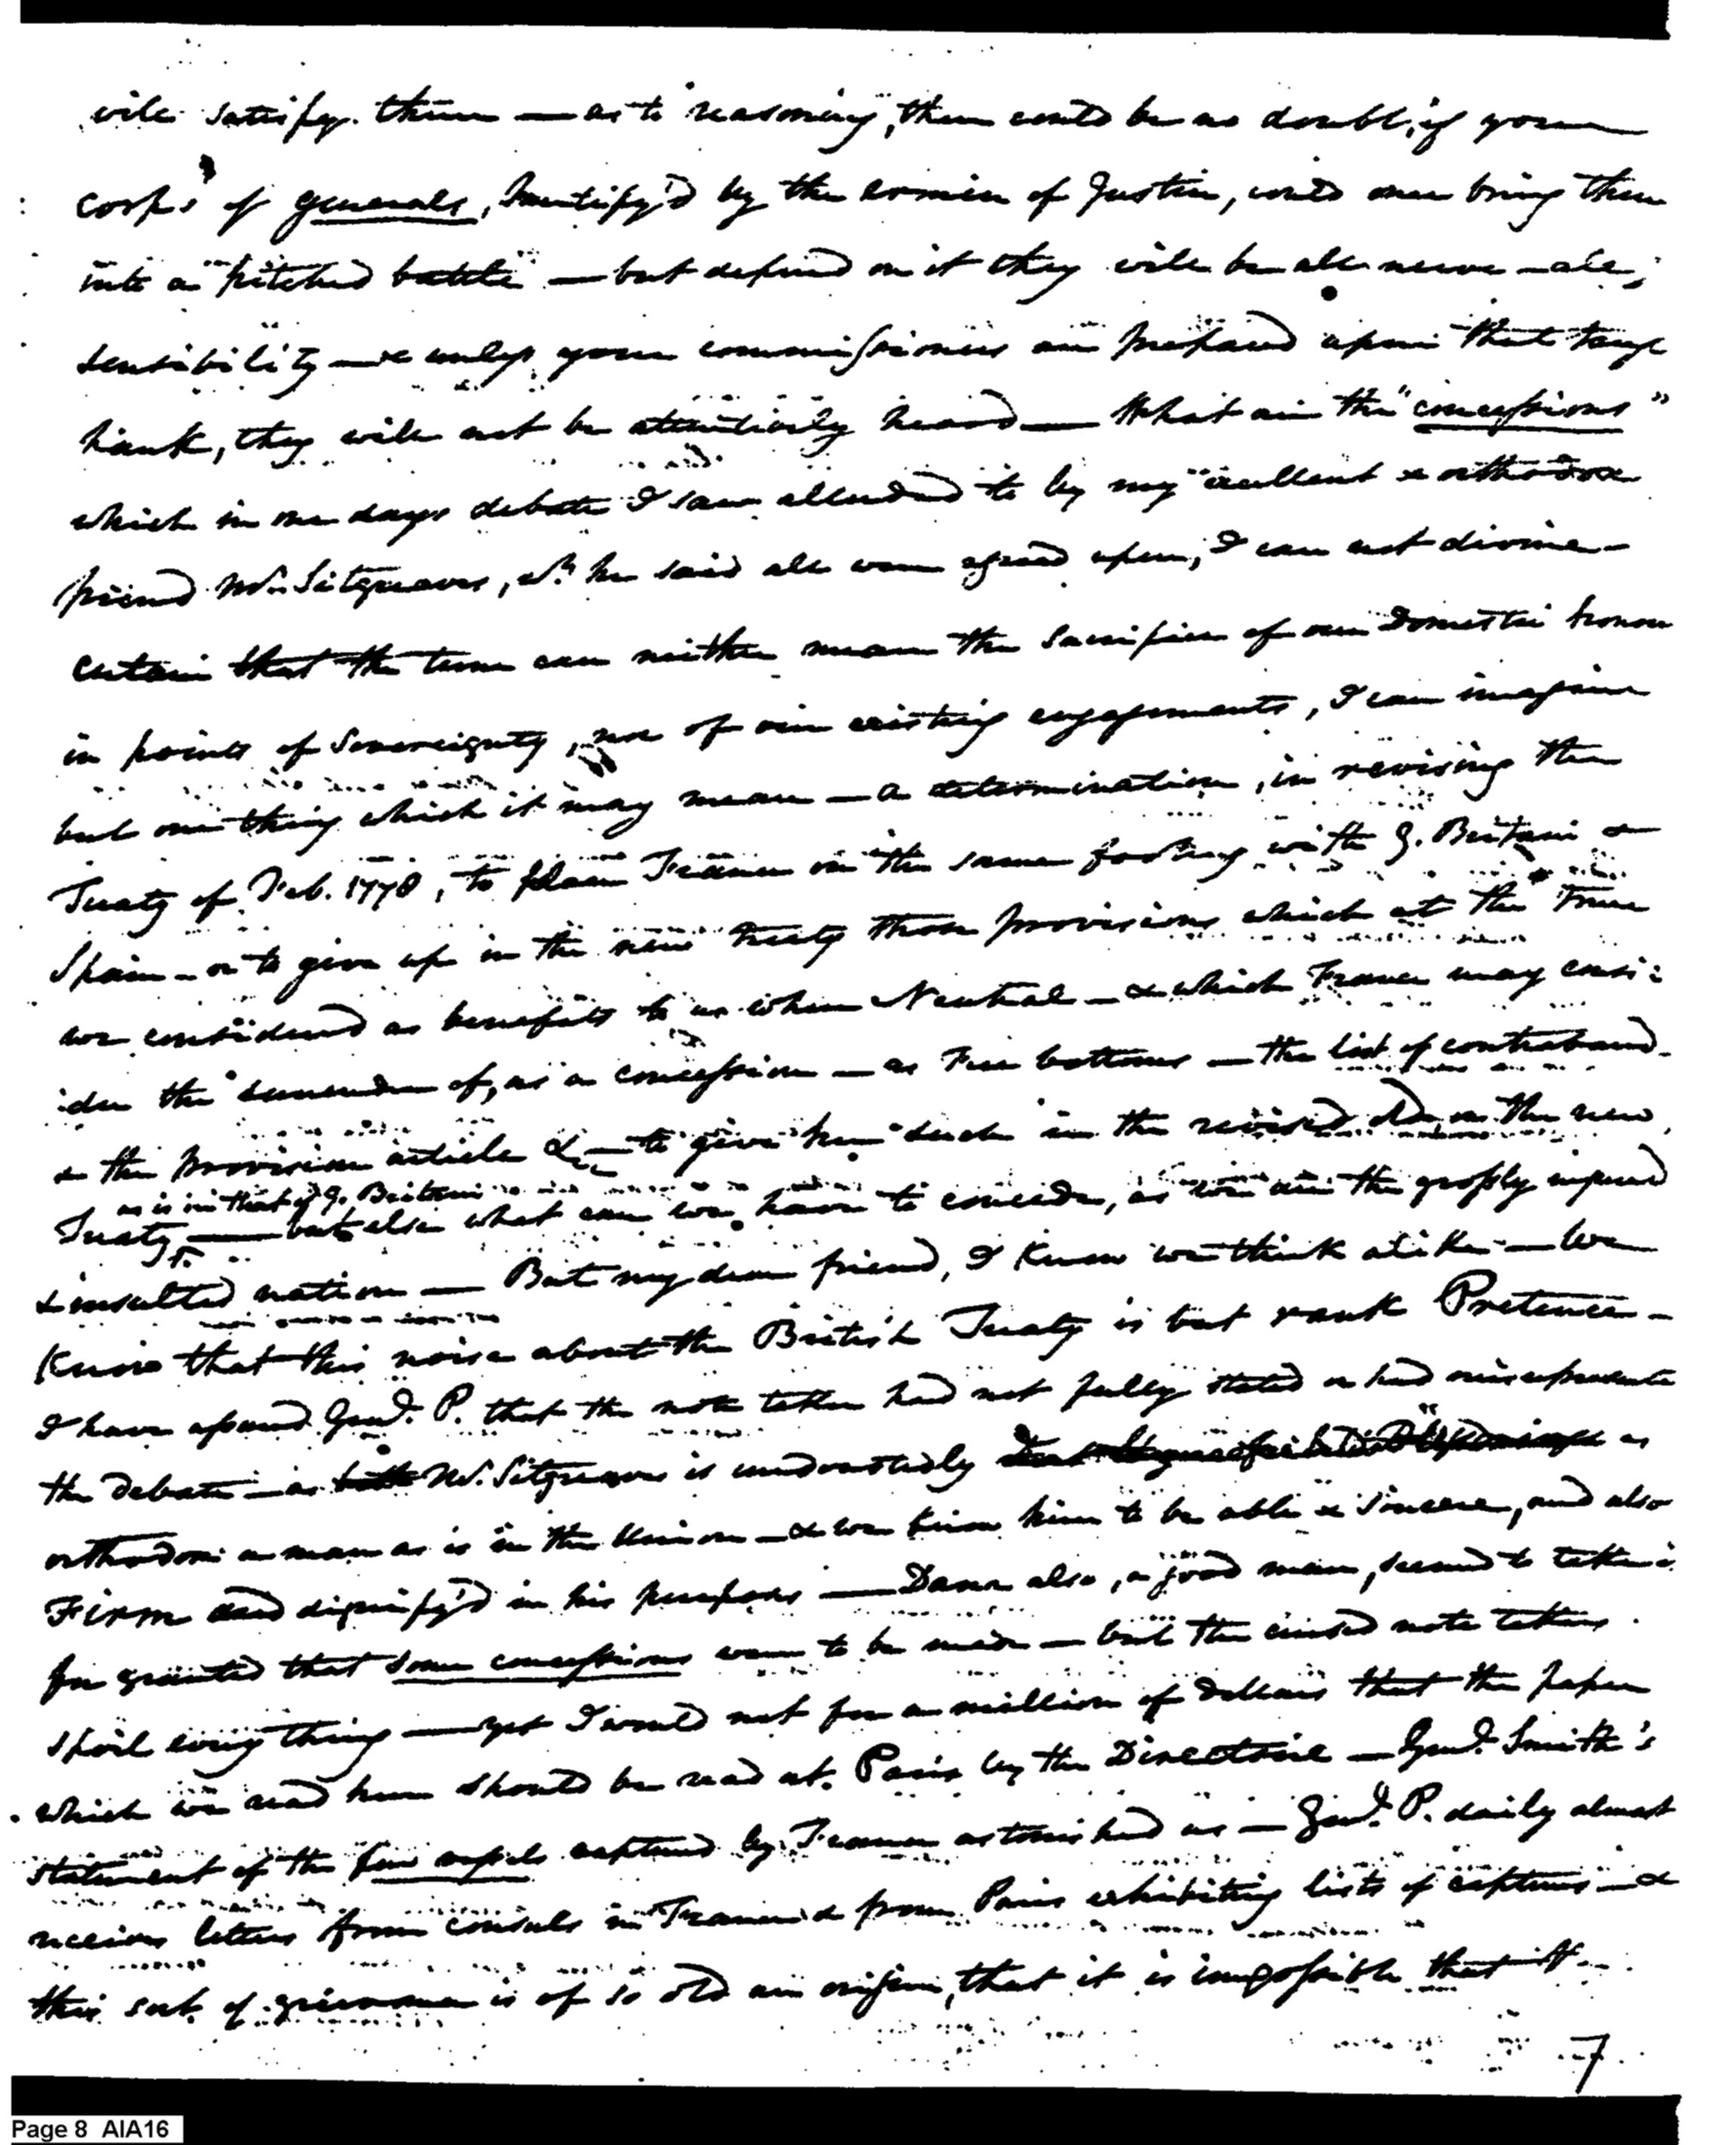 will satisfy them — as to reasoning, there could be no doubt, if your
corps of generals, by the ermine of Justice, could once bring them
into a pitched battle — but depend on it they will be all nerve — all
sensibility — & unless your commissioners are prepared upon that
they will not be attentively heard — What are the "concessions"
which in one days debate I saw alluded to by my excellent & orthodox
friend Mr. Sitgreaves, wh. he said all were agreed upon, I can not divine —
certain that the term can neither mean the sacrifice of our Domestic honour
in points of Sovereignty, nor of our existing engagements, I can imagine
but one thing which it may mean — a determination, in revising the
Treaty of Feb. 1778, to place France on the same footing with G. Britain &
Spain — or to give up in the new treaty those provisions which at the time
we considered as benefits to us when Neutral — & which France may cons:
:ider the surrender of, as a concession — as Free bottoms — the list of contraband —
& the provision article &c — to give her such in the revised or the new
as is in that of G. Britain
Treaty — but else what can we have to concede, as we are the grossly injured
& insulted nation — But my dear friend, I know we think alike — We
Know that this noise about the British Treaty is but rank Pretence —
I have assured Genl. P. that the note taker had not fully stated or had misrepresented
the debate — as Mr. Sitgreaves is undoubtedly as
orthodox a man as is in the Union — & we know him to be able & sincere, and also
Firm and dignify'd in his purposes — Dana also, a good man, seemed to take it
for granted that some concessions were to be made — but the cursed note takers
spoil every thing — yet I would not for a million of dollars that the paper
which we read here should be read at Paris by the Directoire — Genl. Smith's
statement of the few vessels captured by France astonished us — Genl. P. daily almost
receives letters from consuls in France & from Paris exhibiting lists of captures — &
this sort of grievance is of so old an origin, that it is impossible that
7
Page 8 AIA16